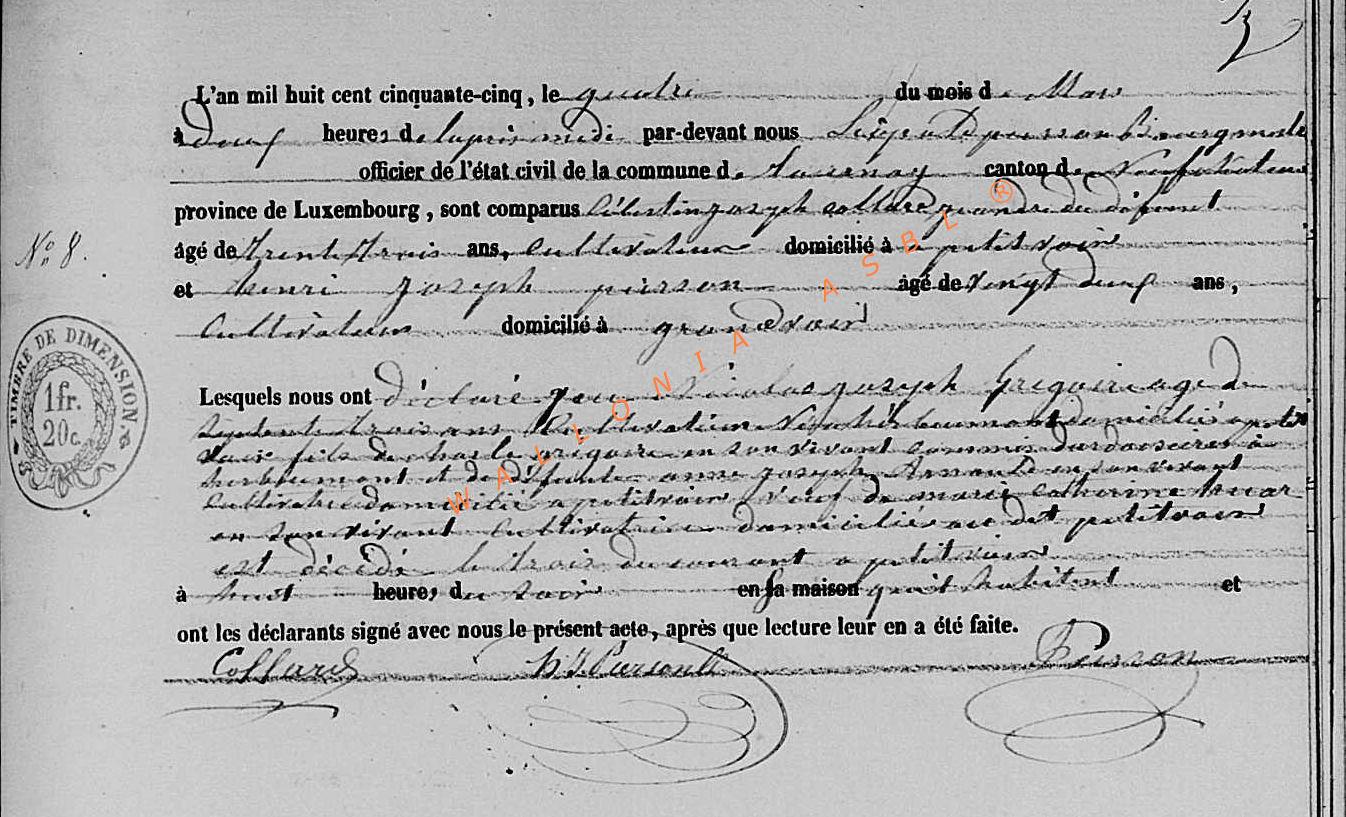 L'an mil huit cent cinquante-cinq, le quatre du mois de Mars
à deux heures de laprès midi par-devant nous pierson Bourgmestre
officier de l'état civil de la commune de tournay canton de Neufchateau
province de Luxembourg, sont comparus Célestin joseph collard gendre du défunt
âgé de trente trois ans, Cultivateur domicilié à petitvoir
No 8.
et henri joseph pierson âgé de vingt deux ans,
Cultivateur domicilié à grandvoir
TIMBRE DE DIMENSION.
1fr.
20c.
Lesquels nous ont déclaré que Nicolas joseph Gregoire agé de
septente trois ans Cultivateur Né à herbeumont domicilié a petit
voir fils de charle gregoire en son vivant commis
herbeumont et de défunte anne joseph Arnould en son vivant
Cultivatrice domicilié a petitvoir veuf de marie catherine huar
en son vivant Cultivatrice domiciliée au dit petitvoir
est décédé le trois du courant a petitvoir
à huit heures du soir en sa maison qu'il habitent et
ont les déclarants signé avec nous le présent acte, après que lecture leur en a été faite.
Collard Pierson
WALLONIA ASBL ®